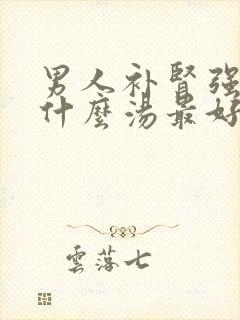 男人补腎强
什麼湯最好
雲落七